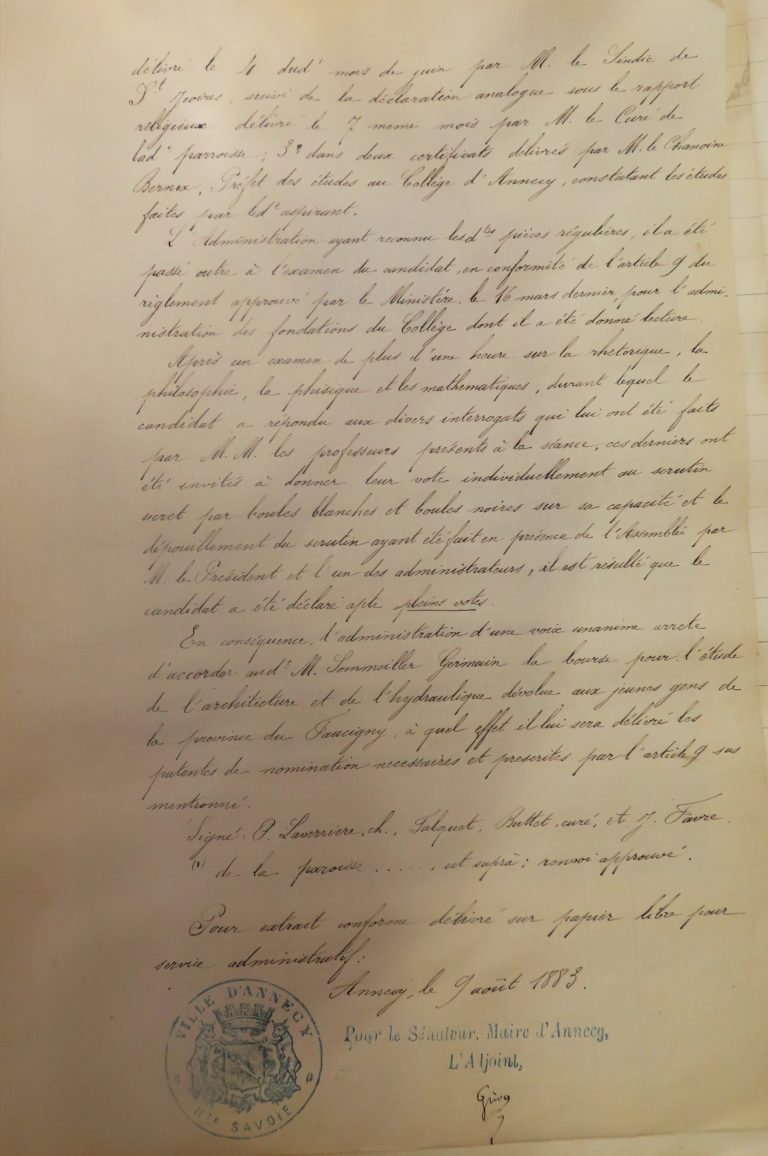 délivré le 4 dud.t mois de juin par M. le Sindic de
S.t Jeoires, suivi de la déclaration analogue sous le rapport
religieux délivré le 7 meme mois par M. le Curé de
lad.e parroisse; 3.o dans deux certificats délivrés par M. le Chanoine
Bernex, Préfet des études au Collège d'Annecy, constatant les études
faites par led.t aspirant.
L'Administration ayant reconnu lesd.tes pièces régulières, il a été
passé outre à l'examen du candidat, en conformité de l'article 9 du
règlement approuvé par le Ministère, le 16 mars dernier, pour l'admi-
nistration des fondations du Collège dont il a été donné lecture.
Après un examen de plus d'une heure sur la rhétorique, la
philosophie, la phisique et les mathematiques, durant lequel le
candidat a répondu aux divers interrogats qui lui ont été faits
par M. M. les professeurs présents à la séance, ces derniers ont
été invités à donner leur vote individuellement au scrutin
secret par boules blanches et boules noires sur sa capacité et le
dépouillement du scrutin ayant été fait en présence de l'Assemblée par
M. le Président et l'un des administrateurs, il est résulté que le
candidat a été déclaré apte pleins votes.
En conséquence, l'administration d'une voix unanime arrete
d'accorder aud.t M. Sommeiller Germain la bourse pour l'étude
de l'architecture et de l'hydraulique dévolue aux jeunes gens de
la province du Faucigny, à quel effet il lui sera délivré les
patentes de nomination necessaires et prescrites par l'article 9 sus
mentionné.
Signé: P. Laverriere, ch., Falquet, Buttet, curé, et J. Favre.
(1) de la paroisse ......, ut suprà; renvoi approuvé.
Pour extrait conforme délivré sur papier libre pour
service administratif:
Annecy, le 9 août 1883.
Pour le Sénateur, Maire d'Annecy,
L'Adjoint,
VILLE D'ANNECY
H.TE SAVOIE